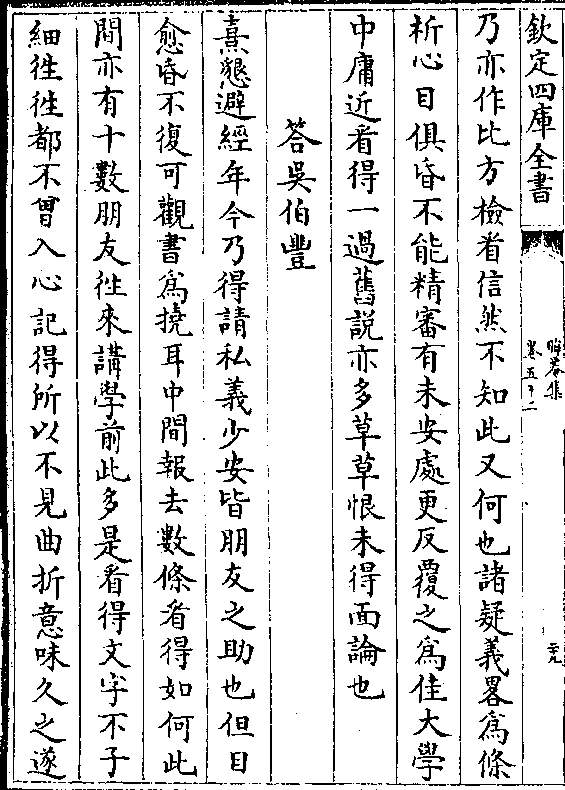 欽定四庫全書
晦菴集
卷五十二
二十九
乃亦作比方檢看信然不知此又何也諸疑義畧爲條
析心目俱昏不能精審有未安處更反覆之爲佳大學
中庸近看得一過舊說亦多草草恨未得面論也
答吳伯豐
熹懇避經年今乃得請私義少安皆朋友之助也但目
愈昏不復可觀書爲撓耳中間報去數條看得如何此
間亦有十數朋友徃來講學前此多是看得文字不子
細徃徃都不曾入心記得所以不見曲折意味久之遂